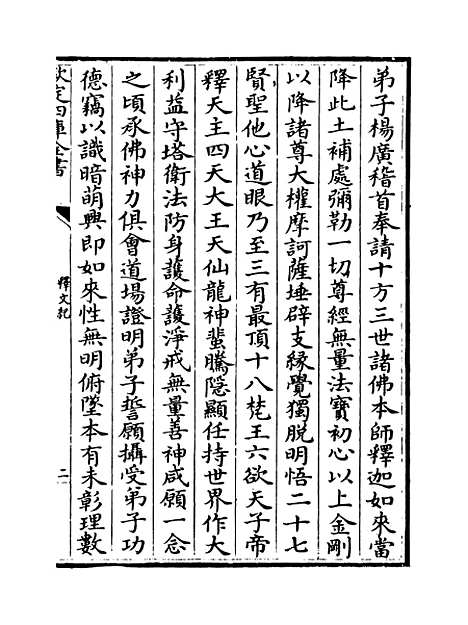 弟子楊廣稽首奉請十方三世諸佛本師釋迦如來當
降此土補處彌勒一切尊經無量法寶初心以上金剛
以降諸尊大權摩訶薩埵辟支緣覺獨脱明悟二十七
賢聖他心道眼乃至三有最頂十八梵王六欲天子帝
釋天主四天大王天仙龍神蜚騰隱顯任持世界作大
利益守塔衛法防身護命護淨戒無量善神咸願一念
之頃承佛神力俱會道場證明弟子誓願攝受弟子功
德竊以識暗萌興即如來性無明俯墜本有未彰理數
欽定四庫全書
釋文紀
二